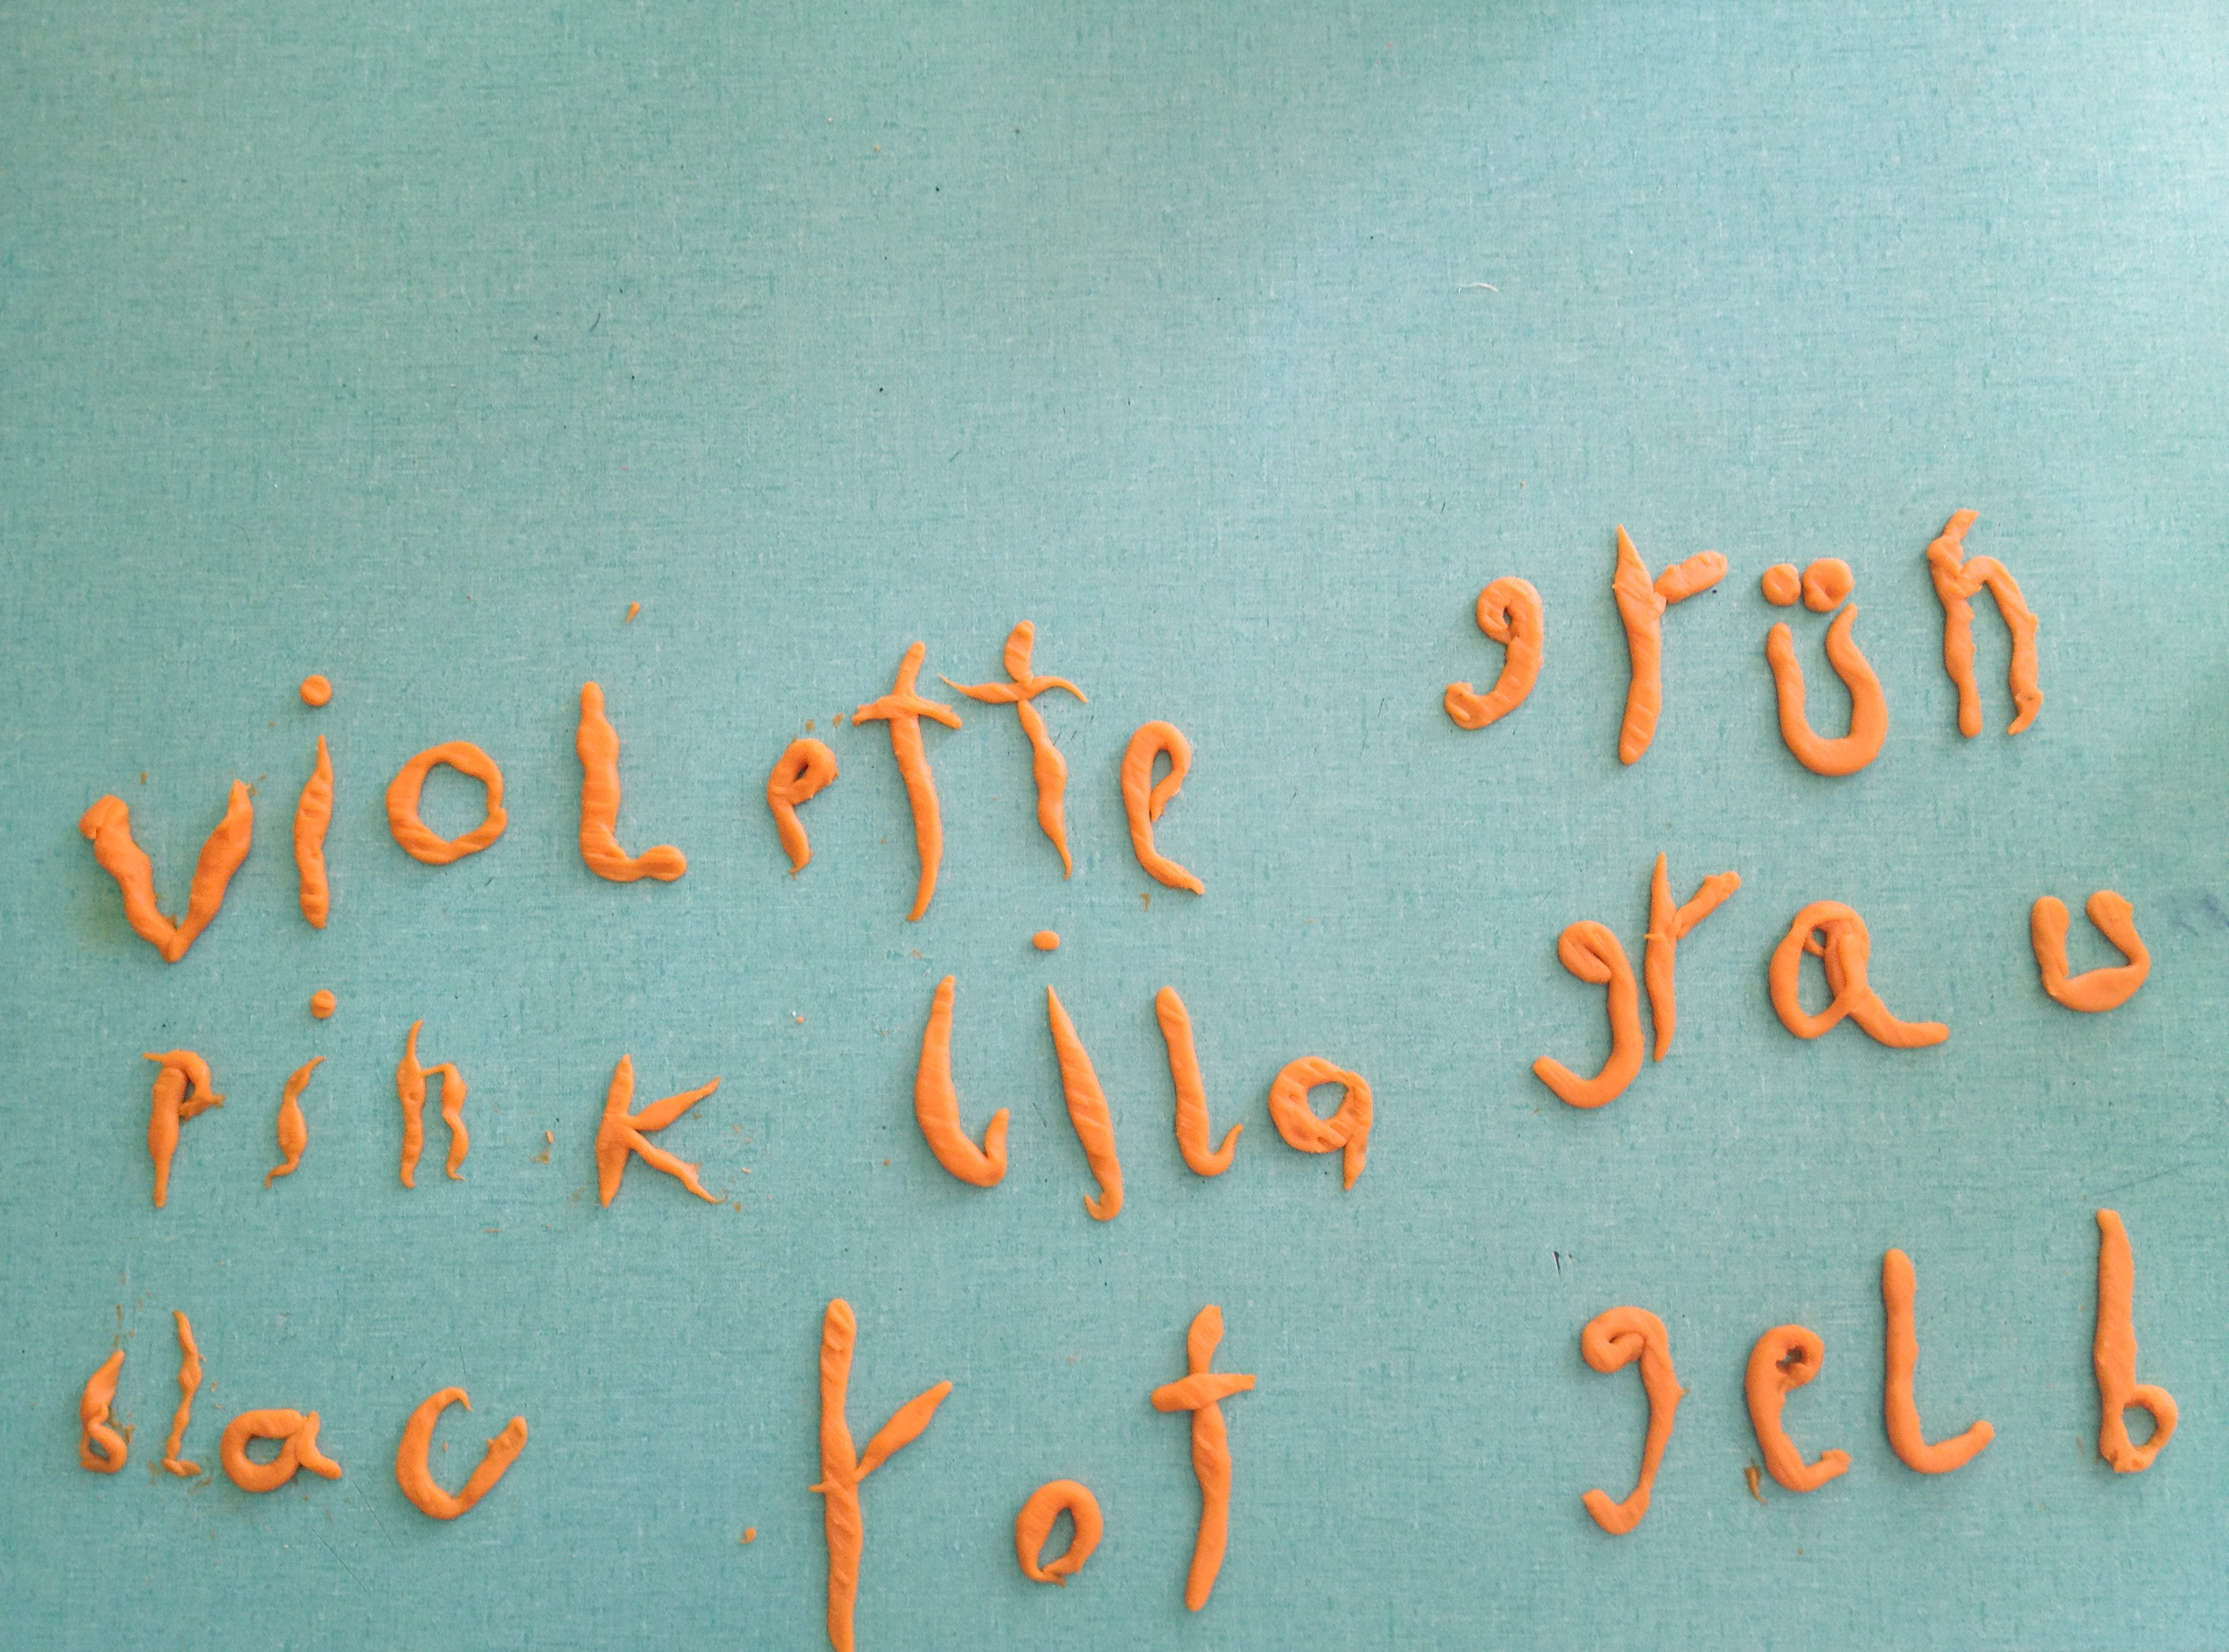 violette grün
pink lila grau
blac rot gelb